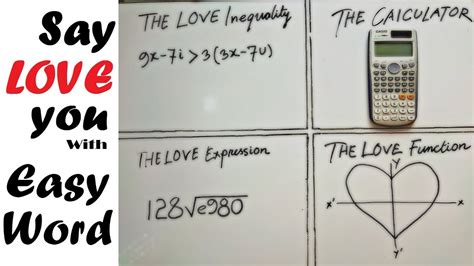 Say
LOVE
you
With
Easy
Word
THE LOVE Inequality
9x-7i > 3(3x-7u)
THE CALCULATOR
CASIO
THE LOVE Expression
128√e980
THE LOVE Function
Y
x'
x
Y'